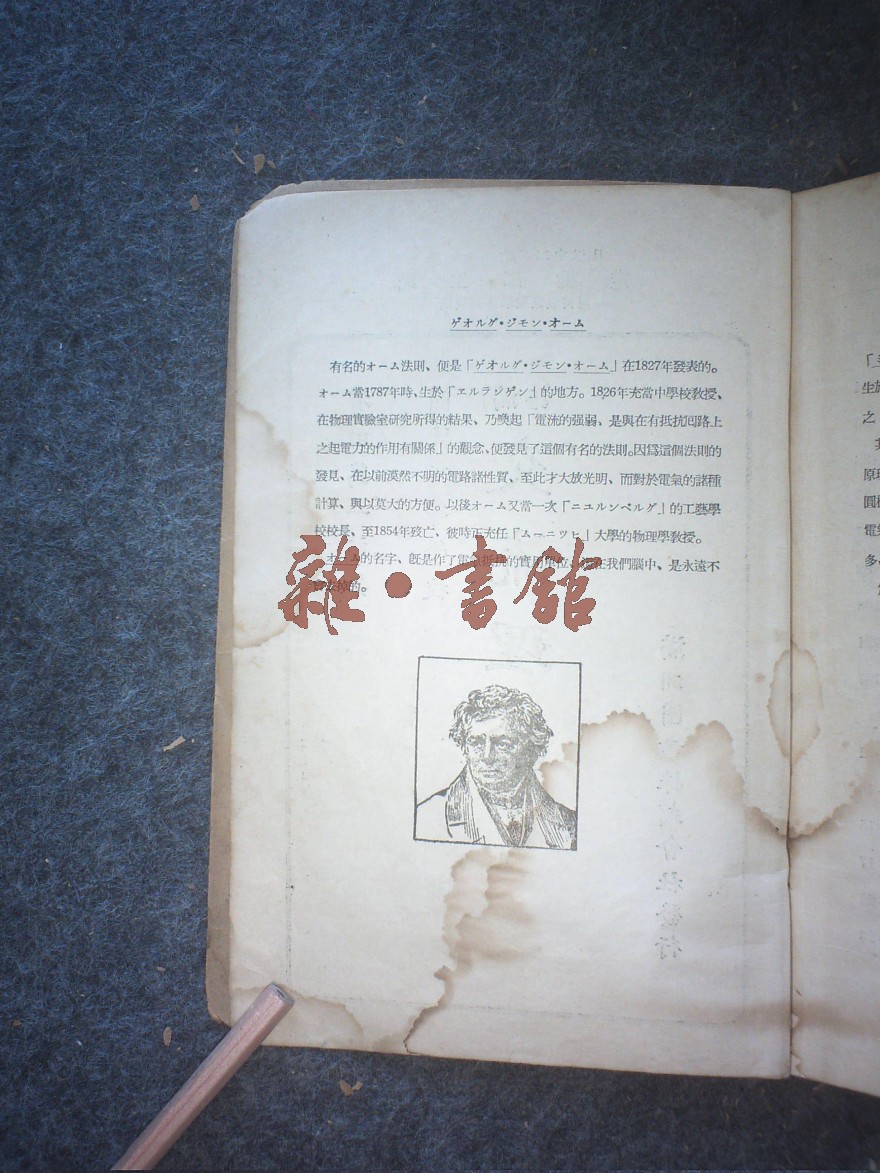 ゲオルグ・ジモン・オーム
有名的オーム法則、便是「ゲオルグ・ジモン・オーム」在1827年發表的。
オーム當1787年時、生於「エルランゲン」的地方。1826年充當中學校敎授、
在物理實驗室硏究所得的結果、乃喚起「電流的强弱、是與在有抵抗回路上
之起電力的作用有關係」的觀念、便發見了這個有名的法則。因爲這個法則的
發見、在以前漠然不明的電路諸性質、至此才大放光明、而對於電氣的諸種
計算、與以莫大的方便。以後オーム又當一次「ニユルンベルグ」的工藝學
校校長、至1854年歿亡、彼時正充任「ムーニツヒ」大學的物理學敎授。
オームの名字、旣是作了電氣抵抗的實用單位、在我們腦中、是永遠不
的。
雜・書館
生於
之
其
原理
圓
電氣
多、